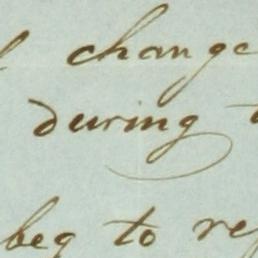 change
during
beg to